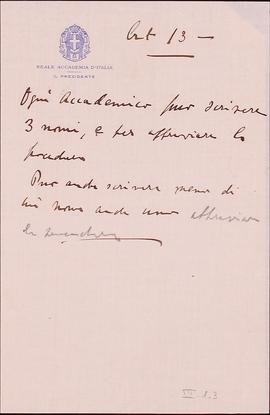 REALE ACCADEMIA D'ITALIA
IL PRESIDENTE
Art 13 —
Ogni Accademico può scrivere
3 nomi, e per abbreviare la
procedura
Può anche scrivere meno di
nomi anche uno abbreviare
la procedura
VII 1.3